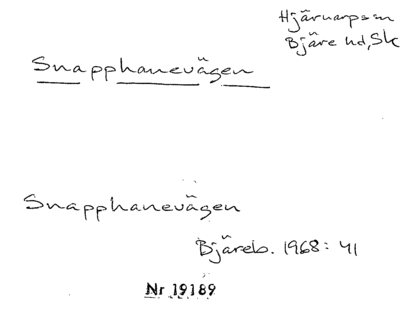 Hjärnarpssn
Bjäre hd, Sk
Snapphanevägen
Snapphanevägen
Bjäreb. 1968: 41
Nr 19189